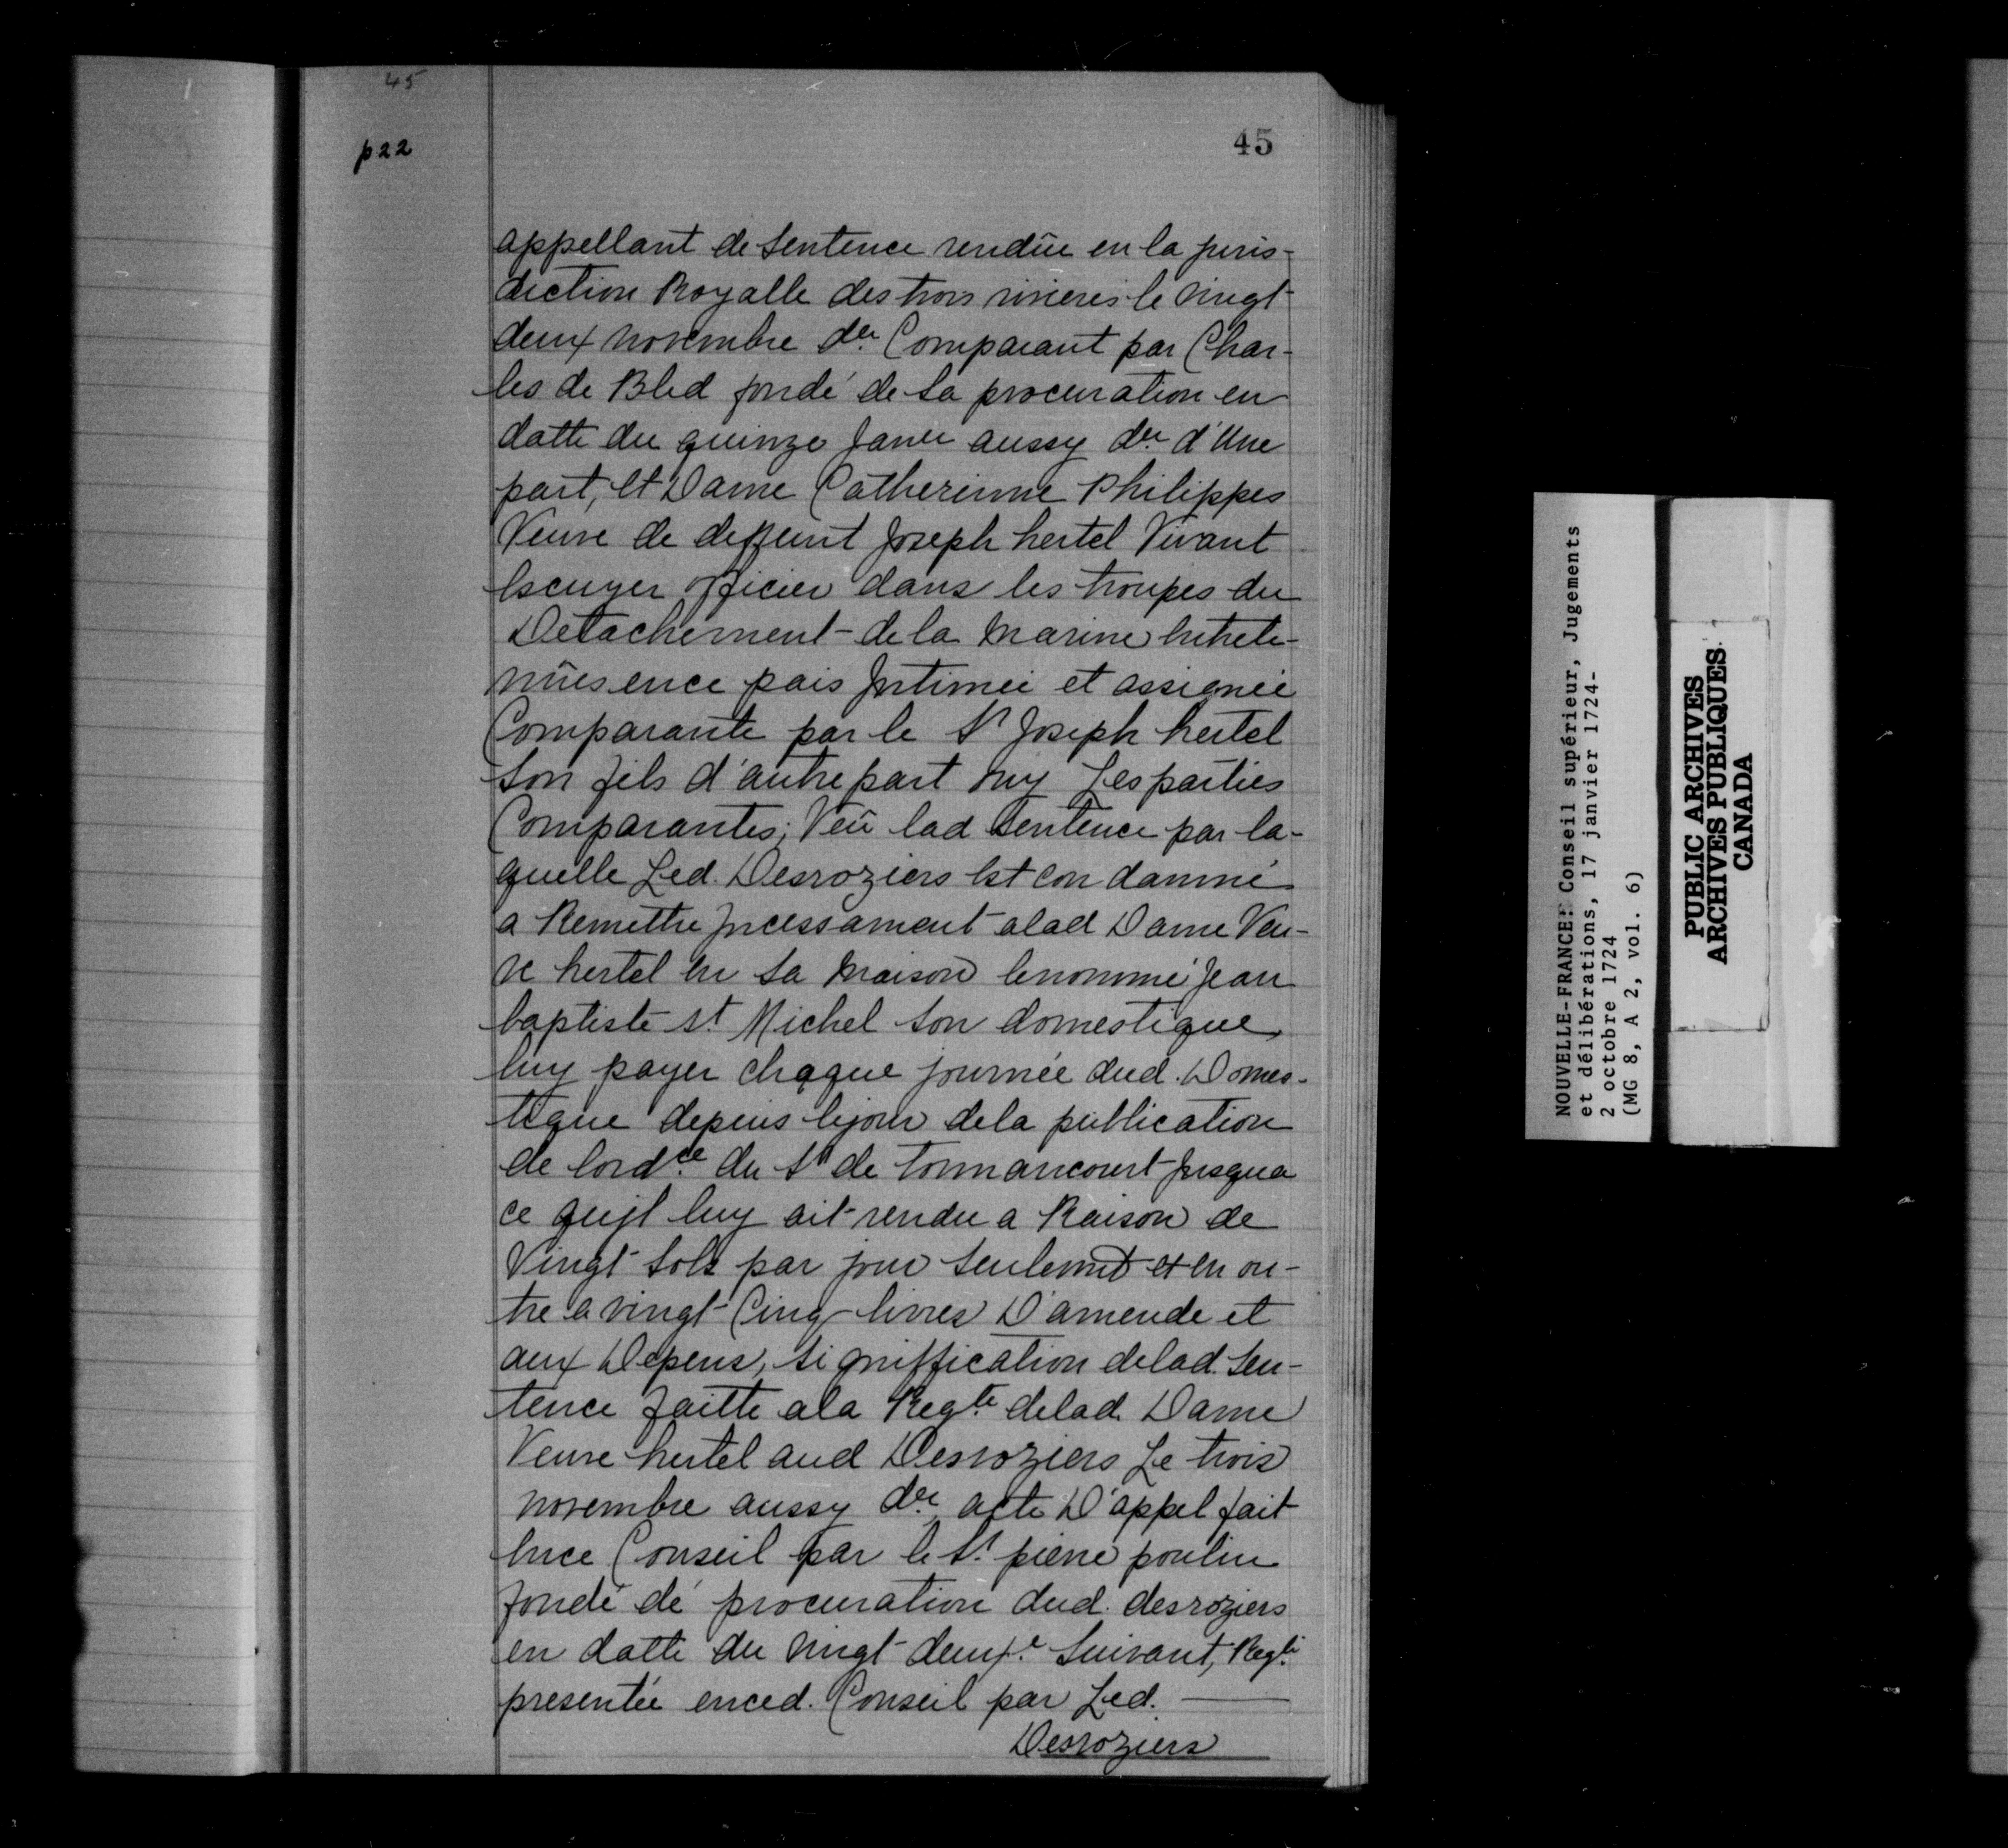 45
p 22
45
appellant de Sentence rendüe en la juris-
diction Royalle des trois rivieres le vingt
deux novembre der Comparant par Char-
les de Bled fondé de sa procuration en
datte du quinze Janer aussy der d'Une
part, Et Dame Catherinne Philippes
Veuve de deffunt Joseph hertel Vivant
Escuyer officier dans les troupes du
Detachement de la Marine Entrete-
nües ence païs Jntimée et assignée
Comparante par le Sr Joseph hertel
son fils d'autre part ouy Les parties
Comparantes; Veü lad Sentence par la-
quelle Led. Desroziers Est Condamné
a Remettre Jncessament alad Dame Veu-
ve hertel En sa maison lenommé Jean
baptiste St Michel son domestique,
luy payer chaque journée dud. Domes-
tique depuis lejour dela publication
de lordce du Sr de tonnancourt Jusqua
ce quil luy ait rendu a Raison de
Vingt sols par jour seulemt et En ou-
tre a vingt Cinq livres D'amende et
aux Depens, signiffication delad. Sen-
tence faitte ala Reqte delad. Dame
Veuve hertel aud Desroziers Le trois
novembre aussy der, acte D'appel fait
Ence Conseil par le Sr pierre poulin
fondé de procuration dud. desroziers
en datte du vingt deuxe Suivant, Reqte
presentée enced. Conseil par Led.
Desroziers
NOUVELLE-FRANCE: Conseil supérieur, Jugements
et délibérations, 17 janvier 1724-
2 octobre 1724
(MG 8, A 2, vol. 6)
PUBLIC ARCHIVES
ARCHIVES PUBLIQUES
CANADA